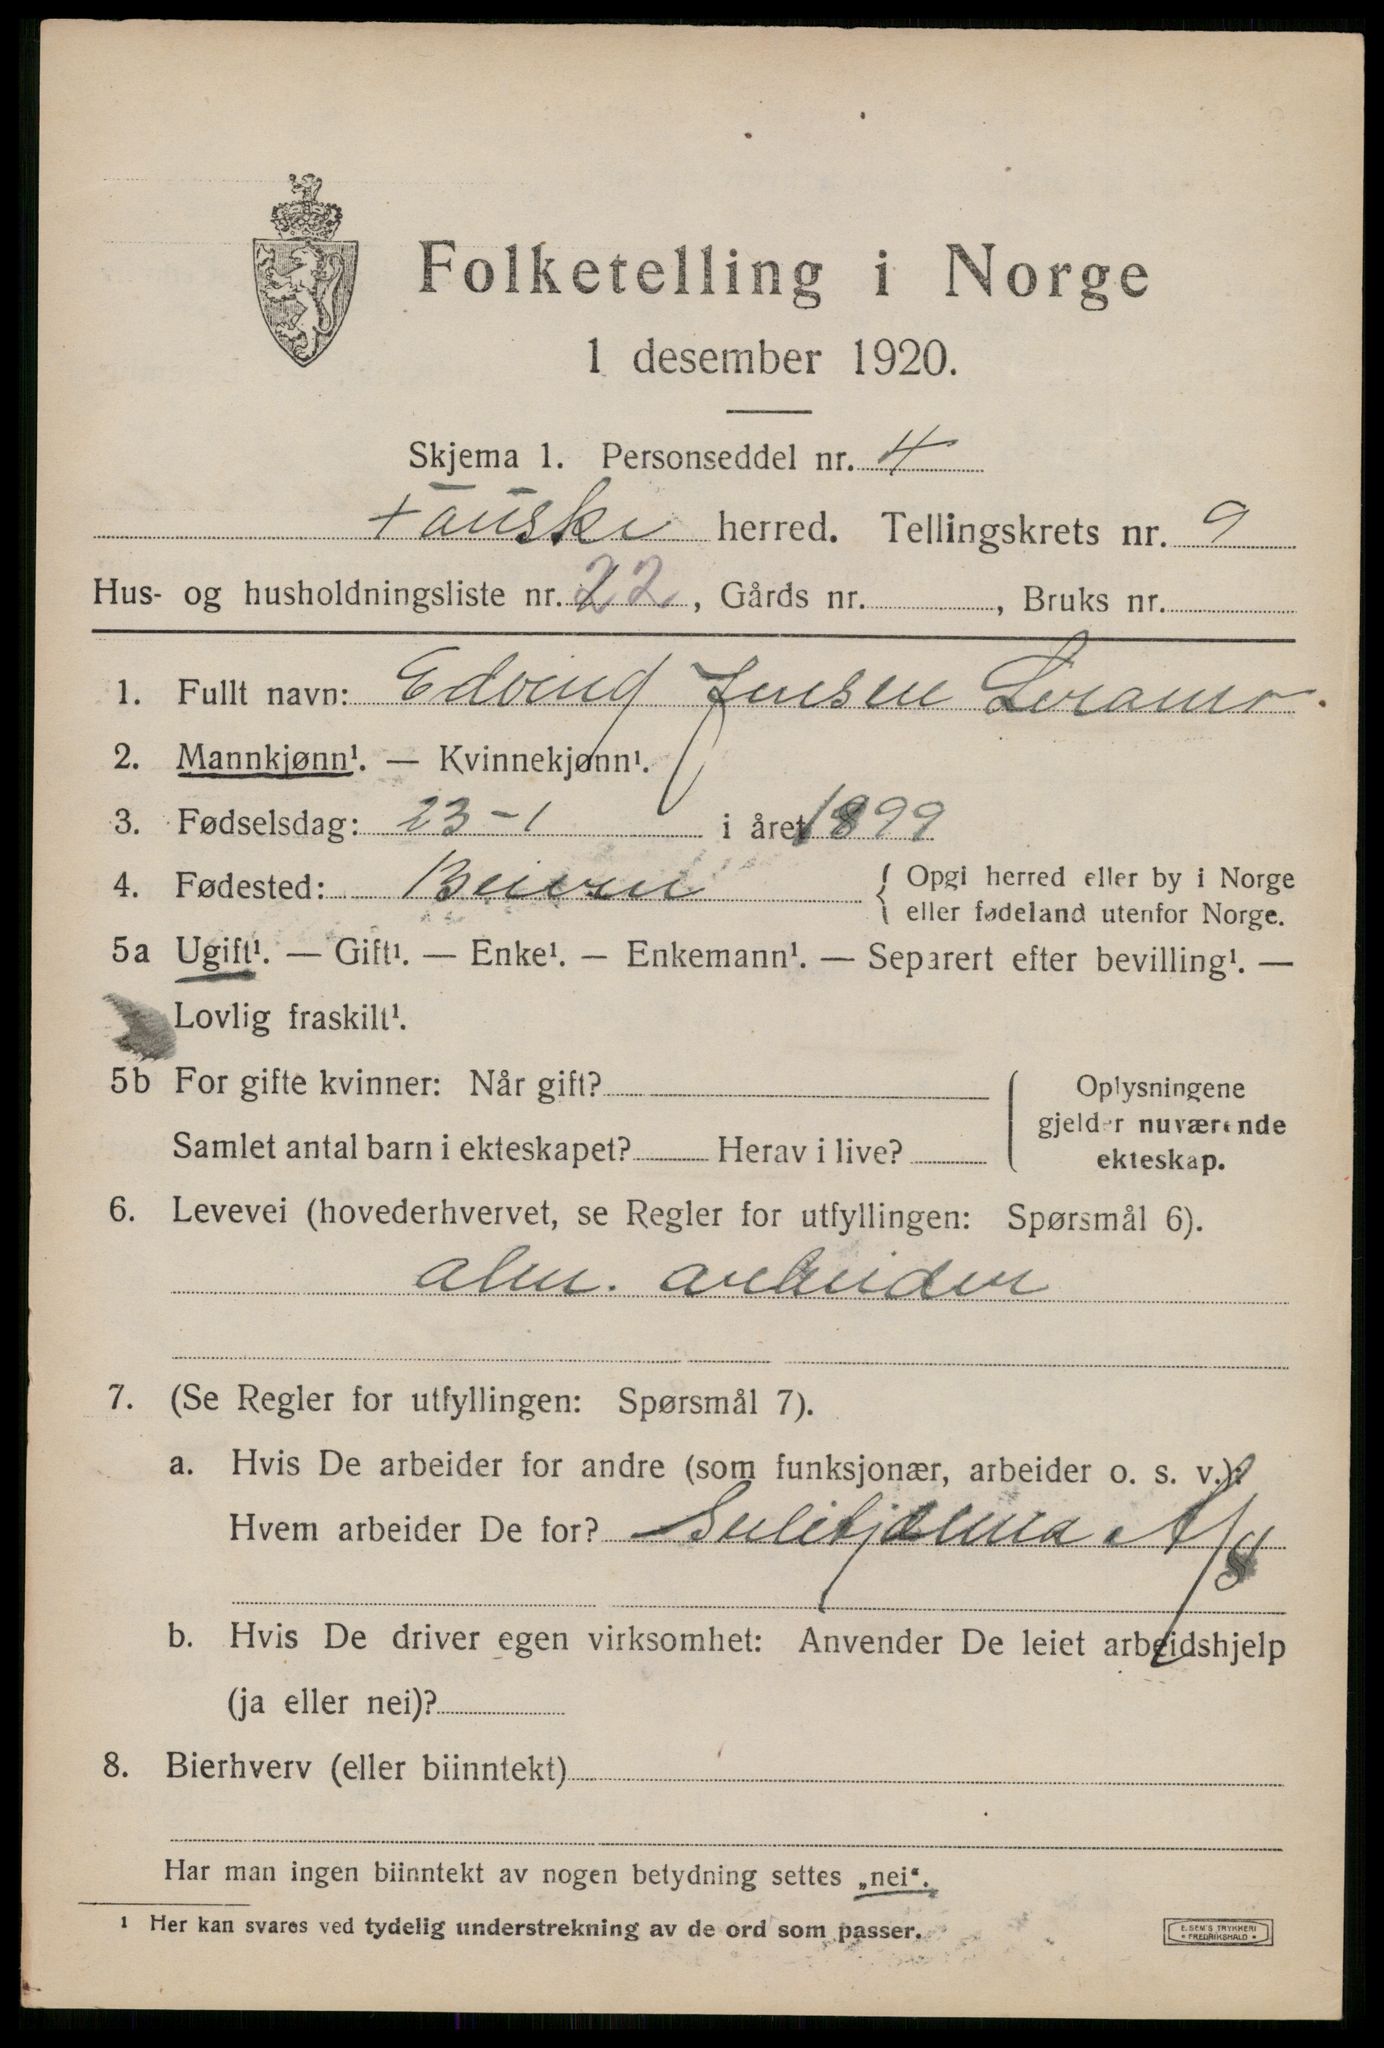 Folketelling i Norge
1 desember 1920.
Skjema 1. Personseddel nr. 4
Fauske herred. Tellingskrets nr. 9
Hus- og husholdningsliste nr. 22, Gårds nr. , Bruks nr.
1. Fullt navn: Edving Jensen
2. Mannkjønn¹. — Kvinnekjønn¹.
3. Fødselsdag: 23-1 i året 1899
4. Fødested: Beiern { Opgi herred eller by i Norge
eller fødeland utenfor Norge.
5a Ugift¹. — Gift¹. — Enke¹. — Enkemann¹. — Separert efter bevilling¹. —
Lovlig fraskilt¹.
5b For gifte kvinner: Når gift?
Samlet antal barn i ekteskapet? Herav i live?
Oplysningene
gjelder nuværende
ekteskap.
6. Levevei (hovederhvervet, se Regler for utfyllingen: Spørsmål 6).
alm. arbeider
7. (Se Regler for utfyllingen: Spørsmål 7).
a. Hvis De arbeider for andre (som funksjonær, arbeider o. s. v.):
Hvem arbeider De for? Sulitjelma A/S
b. Hvis De driver egen virksomhet: Anvender De leiet arbeidshjelp
(ja eller nei)?
8. Bierhverv (eller biinntekt)
Har man ingen biinntekt av nogen betydning settes „nei“.
¹ Her kan svares ved tydelig understrekning av de ord som passer.
E. SEM'S TRYKKERI
• FREDRIKSHALD •